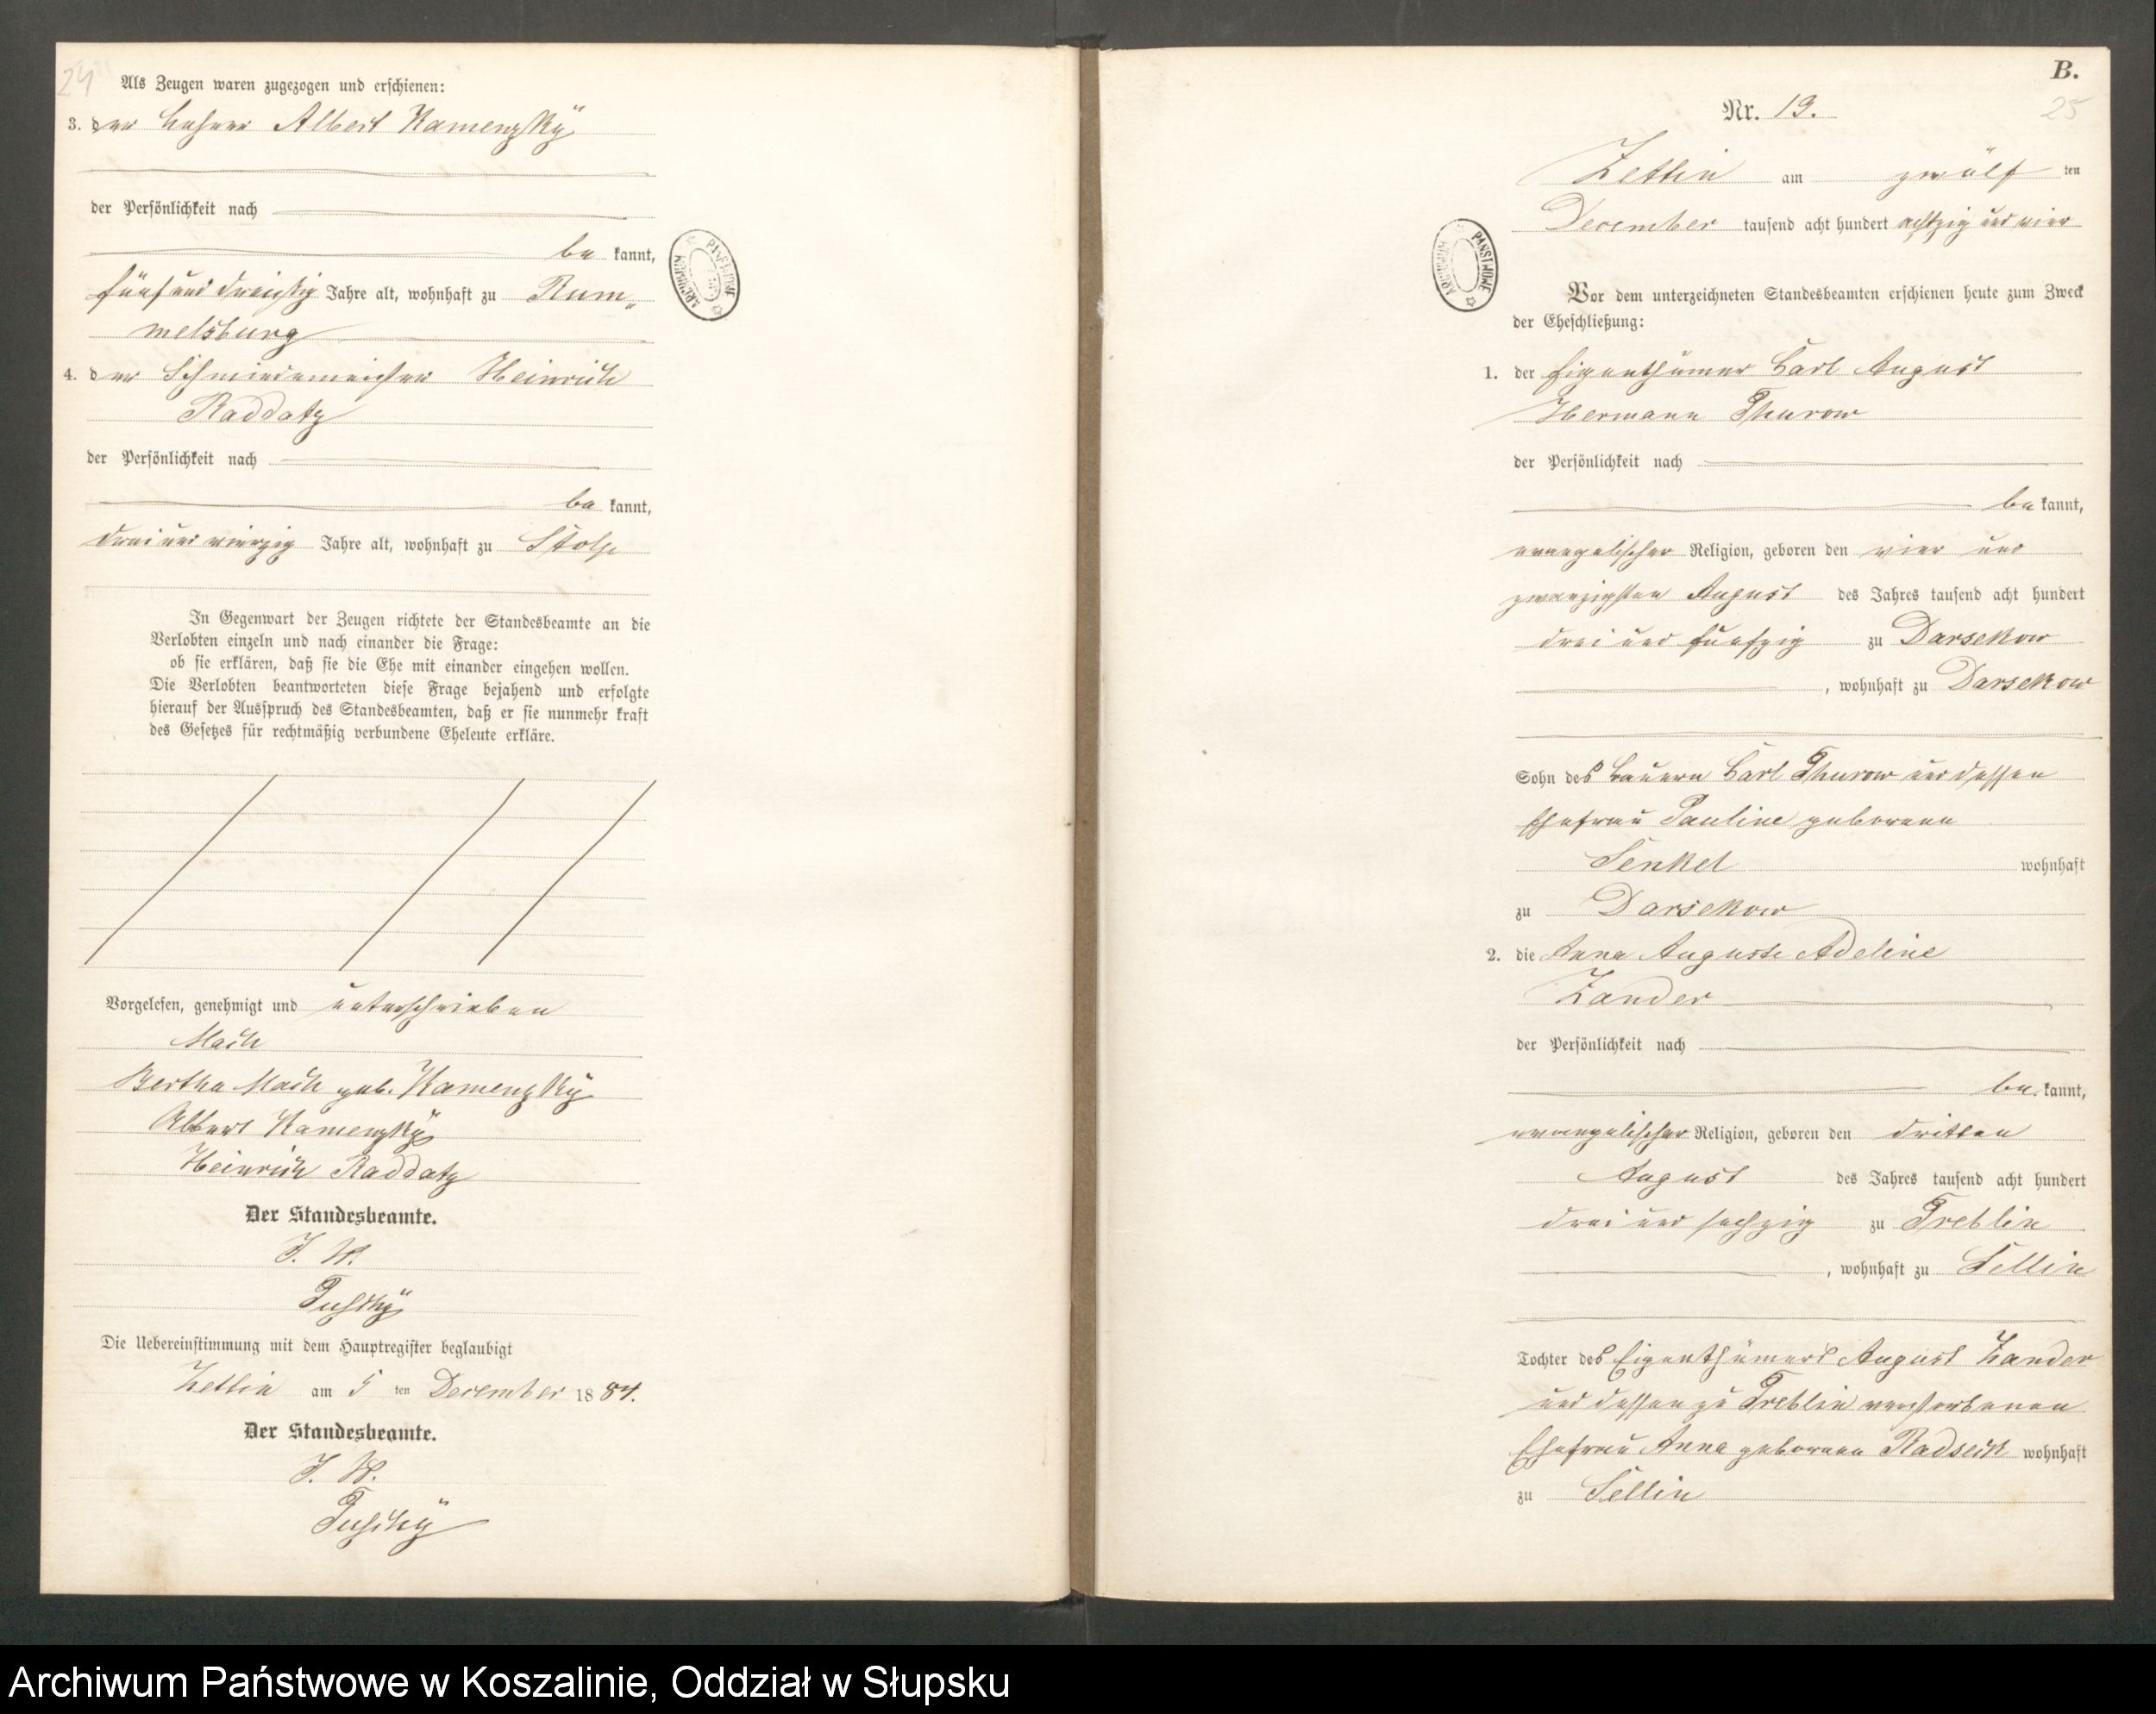 24
Als Zeugen waren zugezogen und erschienen:
3. der Lehrer Albert Kamenzky
der Persönlichkeit nach
be kannt,
fünf und dreißig Jahre alt, wohnhaft zu Rum„
melsburg
4. der Schmiedemeister Heinrich
Raddatz
der Persönlichkeit nach
be kannt,
drei und vierzig Jahre alt, wohnhaft zu Stolp
In Gegenwart der Zeugen richtete der Standesbeamte an die
Verlobten einzeln und nach einander die Frage:
ob sie erklären, daß sie die Ehe mit einander eingehen wollen.
Die Verlobten beantworteten diese Frage bejahend und erfolgte
hierauf der Ausspruch des Standesbeamten, daß er sie nunmehr kraft
des Gesetzes für rechtmäßig verbundene Eheleute erkläre.
Vorgelesen, genehmigt und unterschrieben
Mach
Bertha Mach geb. Kamenzky
Albert Kamenzky
Heinrich Raddatz
Der Standesbeamte.
J. V.
Die Uebereinstimmung mit dem Hauptregister beglaubigt
Zettin am 5 ten December 18 84.
Der Standesbeamte.
J. V.
ARCHIWUM PAŃSTWOWE
B.
25
Nr. 19.
Zettin am zwölf ten
December tausend acht hundert achtzig und vier
ARCHIWUM PAŃSTWOWE
Vor dem unterzeichneten Standesbeamten erschienen heute zum Zweck
der Eheschließung:
1. der Eigenthümer Carl August
Hermann Thurow
der Persönlichkeit nach
be kannt,
evangelischer Religion, geboren den vier und
zwanzigsten August des Jahres tausend acht hundert
drei und fünfzig zu Darsekow
, wohnhaft zu Darsekow
Sohn des Bauern Carl Thurow und dessen
Ehefrau Pauline geborene
Senkel wohnhaft
zu Darsekow
2. die Anna Auguste Adeline
Zander
der Persönlichkeit nach
be kannt,
evangelischer Religion, geboren den dritten
August des Jahres tausend acht hundert
drei und sechzig zu Treblin
, wohnhaft zu Sellin
Tochter des Eigenthümers August Zander
und dessen zu Treblin verstorbenen
Ehefrau Anna geborenen Radseck wohnhaft
zu Sellin
Archiwum Państwowe w Koszalinie, Oddział w Słupsku